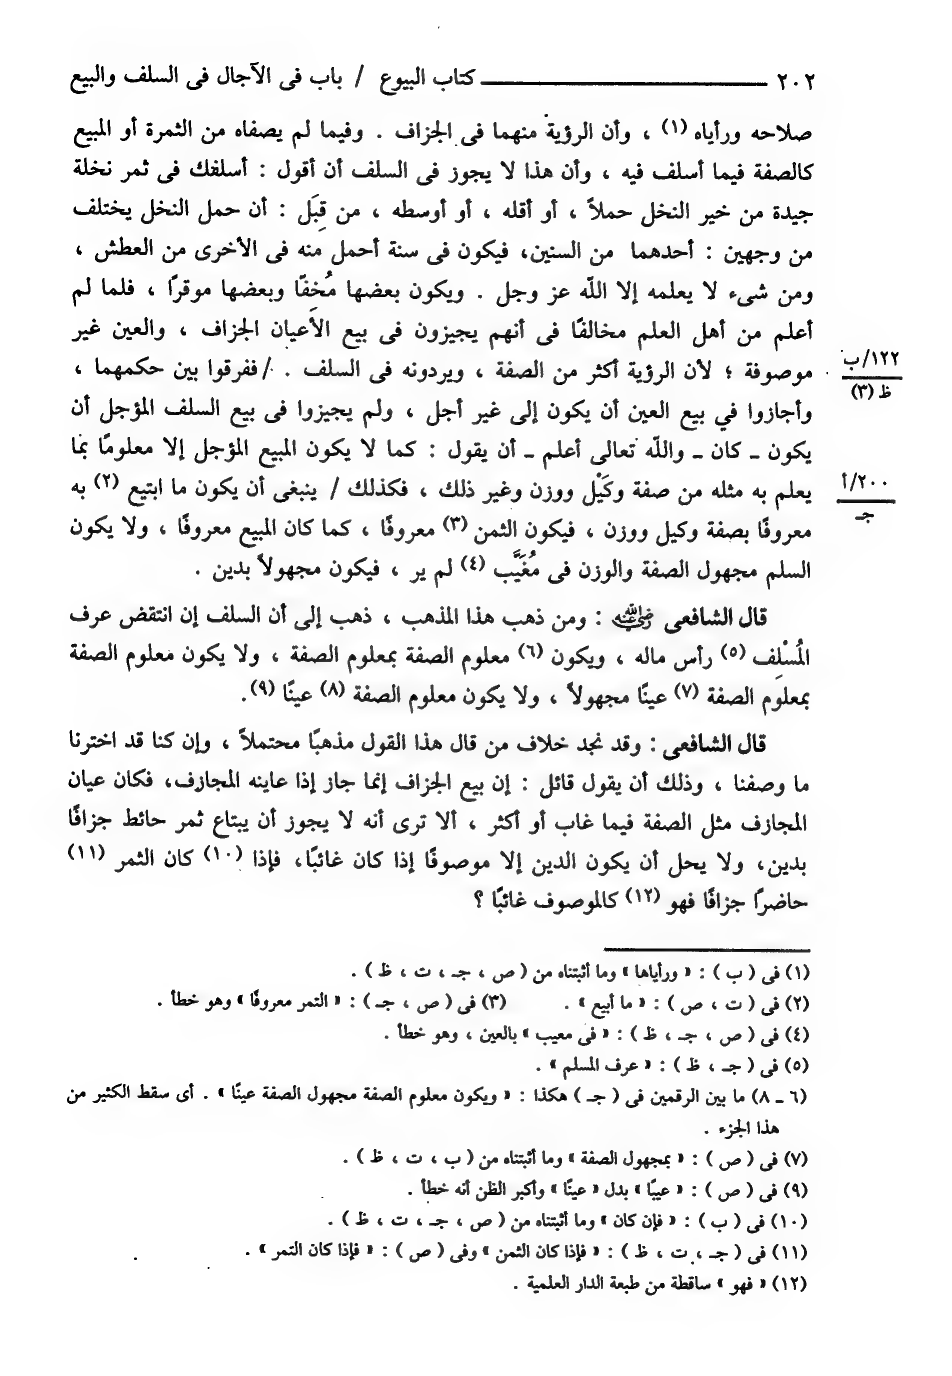 ٢٠٢ ــــــــــــ كتاب البيوع / باب فى الآجال فى السلف والبيع
صلاحه ورأياه (١) ، وأن الرؤية منهما فى الجزاف . وفيما لم يصفاه من الثمرة أو المبيع
كالصفة فيما أسلف فيه ، وأن هذا لا يجوز فى السلف أن أقول : أسلفك فى ثمر نخلة
جيدة من خير النخل حملاً ، أو أقله ، أو أوسطه ، من قِبَل : أن حمل النخل يختلف
من وجهين : أحدهما من السنين، فيكون فى سنة أحمل منه فى الأخرى من العطش ،
ومن شىء لا يعلمه إلا الله عز وجل . ويكون بعضها مُخِفًا وبعضها موقرًا ، فلما لم
أعلم من أهل العلم مخالفًا فى أنهم يجيزون فى بيع الأعيان الجزاف ، والعين غير
موصوفة ؛ لأن الرؤية أكثر من الصفة ، ويردونه فى السلف . / ففرقوا بين حكمهما ،
١٢٢/ب
ظ (٣)
وأجازوا في بيع العين أن يكون إلى غير أجل ، ولم يجيزوا فى بيع السلف المؤجل أن
يكون ـ كان ـ والله تعالى أعلم ـ أن يقول : كما لا يكون المبيع المؤجل إلا معلومًا بما
يعلم به مثله من صفة وكَيْل ووزن وغير ذلك ، فكذلك / ينبغى أن يكون ما ابتيع (٢) به
٢٠٠/أ
جـ
معروفًا بصفة وكيل ووزن ، فيكون الثمن (٣) معروفًا ، كما كان المبيع معروفًا ، ولا يكون
السلم مجهول الصفة والوزن فى مُغَيَّب (٤) لم ير ، فيكون مجهولاً بدين .
قال الشافعى رضي الله عنه : ومن ذهب هذا المذهب ، ذهب إلى أن السلف إن انتقض عرف
المُسْلِف (٥) رأس ماله ، ويكون (٦) معلوم الصفة بمعلوم الصفة ، ولا يكون معلوم الصفة
بمعلوم الصفة (٧) عينًا مجهولاً ، ولا يكون معلوم الصفة (٨) عينًا (٩).
قال الشافعى : وقد نجد خلاف من قال هذا القول مذهبًا محتملاً ، وإن كنا قد اخترنا
ما وصفنا ، وذلك أن يقول قائل : إن بيع الجزاف إنما جاز إذا عاينه المجازف، فكان عيان
المجازف مثل الصفة فيما غاب أو أكثر ، ألا ترى أنه لا يجوز أن يبتاع ثمر حائط جزافًا
بدين، ولا يحل أن يكون الدين إلا موصوفًا إذا كان غائبًا، فإذا (١٠) كان الثمر (١١)
حاضرًا جزافًا فهو (١٢) كالموصوف غائبًا ؟
(١) فى ( ب ) : « ورأياها » وما أثبتناه من ( ص ، جـ ، ت ، ظ ) .
(٢) فى ( ت ، ص ) : « ما أبيع » . (٣) فى ( ص ، جـ ) : « التمر معروفًا » وهو خطأ .
(٤) فى ( ص ، جـ ، ظ ) : « فى معيب » بالعين ، وهو خطأ .
(٥) فى ( جـ ، ظ ) : « عرف المسلم » .
(٦ ـ ٨) ما بين الرقمين فى ( جـ ) هكذا : « ويكون معلوم الصفة مجهول الصفة عينًا » . أى سقط الكثير من
هذا الجزء .
(٧) فى ( ص ) : « بمجهول الصفة » وما أثبتناه من ( ب ، ت ، ظ ) .
(٩) فى ( ص ) : « عيبًا » بدل « عينًا » وأكبر الظن أنه خطأ .
(١٠) فى ( ب ) : « فإن كان » وما أثبتناه من ( ص ، جـ ، ت ، ظ ) .
(١١) فى ( جـ ، ت ، ظ ) : « فإذا كان الثمن » وفى ( ص ) : « فإذا كان التمر » .
(١٢) « فهو » ساقطة من طبعة الدار العلمية .